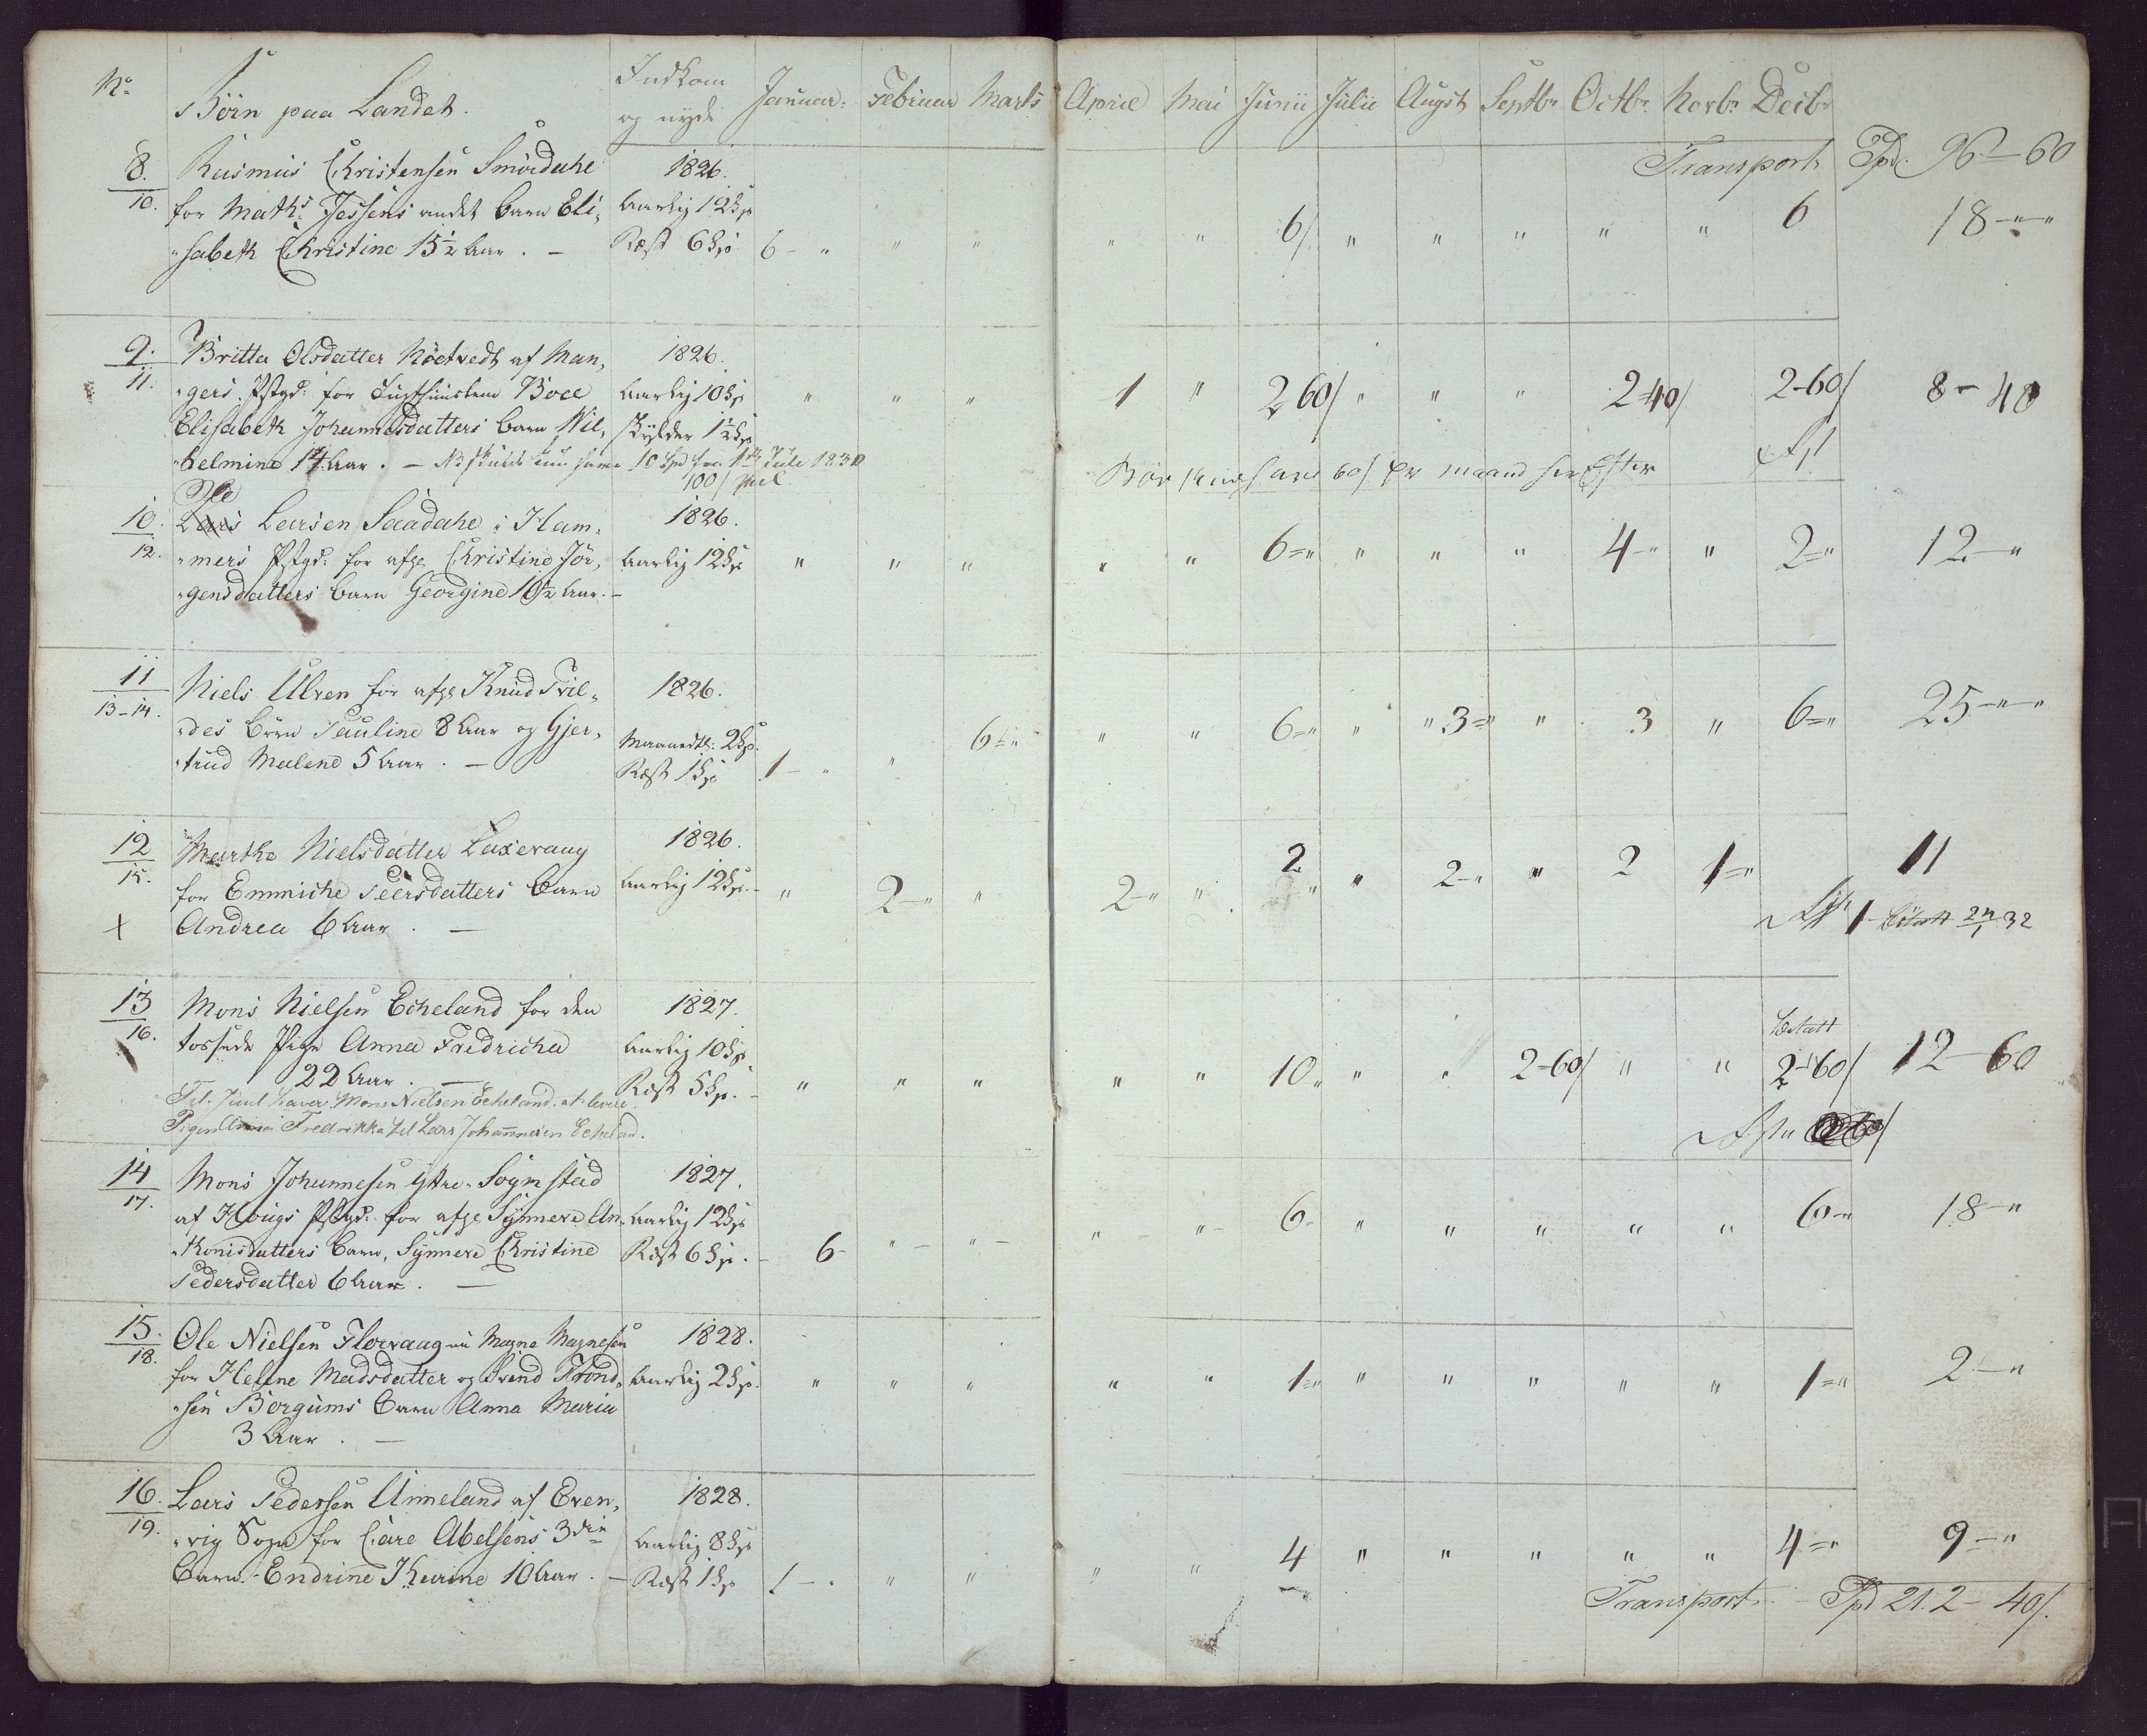 No. Börn paa Landet. Indkom og nyde Januar: Februar Marts April Mai Junii Julii Augst Septbr Octbr. Novbr. Decbr
Transport Spd. 96 - 60
8. Rasmus Christensen Smördahl 1826.
10. for Maths. Jessens andet barn Eli, Aarlig 12 Spd
"sabeth Christine 15½ Aar. - Rest 6 Spd 6 - " " " " " 6/ " " " " " 6 18 - " "
9. Britta Olsdatter Röetvedt af Man, 1826.
11. "gers Pstgd: for Tugthuuslem Boel Aarlig 10 Spd " " " 1 " 2 60/ " " " 2 40/ 2-60/ 8 - 40
Elisabeth Johannesdatters barn Wil, skylder 1½ Spd
"helmine 14 Aar. - 10 Spd fra 1st Julii 1831
100/
Bör kun haves 60/ pr maand herefter
Ole
10. Lars Larsen Saadahl i Ham, 1826.
12. "mers Pstgd: for afg. Christine Jör, Aarlig 12 Spd " " " " " 6-" " " " 4-" " 2-" 12 - "
"gensdatters barn Georgine 10½ Aar. -
11 Niels Ulven for afg. Knud Tvil, 1826.
13-14. "des börn Pauline 8 Aar og Gjer, Maanedtl: 2 Spd. 6-" " " 6-" " " 3-" " 3 " 6-" 25 - " "
"trud Malene 5 Aar. - Rest 1 Spd 1 - " "
12 Marthe Nielsdatter Laxevaag 1826.
15. for Emmiche Peersdatters barn Aarlig 12 Spd. - " 2-" " 2-" " 2 " " 2-" " " 2 1-" 11
x Andrea 6 Aar. - 1 - betalt 24/1 32
13 Mons Nielsen Echeland for den 1827.
16. tossede Pige Anna Fredricha Aarlig 10 Spd betalt
22 Aar. - Rest 5 Spd. - " " " " " 10 " " " 2-60/ " " 2-60/ 12 - 60
Til Juul haver Mons Nielsen Echeland at levere
Pigen Anna Fredrikka til Lars Johannesen Echeland.
14 Mons Johannesen Ytre-Sognstad 1827.
17. af Hougs Pstgd: for afg. Synneve An, Aarlig 12 Spd " - " - 6- " " " " " 6-" 18 - "
"thonisdatters barn, Synneve Christine Rest 6 Spd. - 6- " - " -
Pedersdatter 6 Aar. -
15. Ole Nielsen Florvaag nu Magne Magnesen 1828.
18. for Helene Madsdatter og Svend Trond, Aarlig 2 Spd. " " " " " 1-" " " " " " 1-" 2 - "
"sen Borgums barn Anna Maria
3 Aar. -
16. Lars Pedersen Unneland af Even, 1828.
19. "vig Sogn for Care Abelsens 3die Aarlig 8 Spd
barn - Endrine Karine 10 Aar. - Rest 1 Spd 1 - " " " " " 4 " " " " " 4-" 9 - "
Transport. - Spd 212 - 40/.